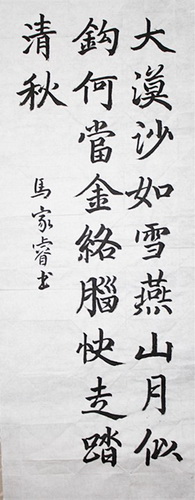 大漠沙如雪燕山月似
鈎何當金絡腦快走踏
清秋
馬家睿书